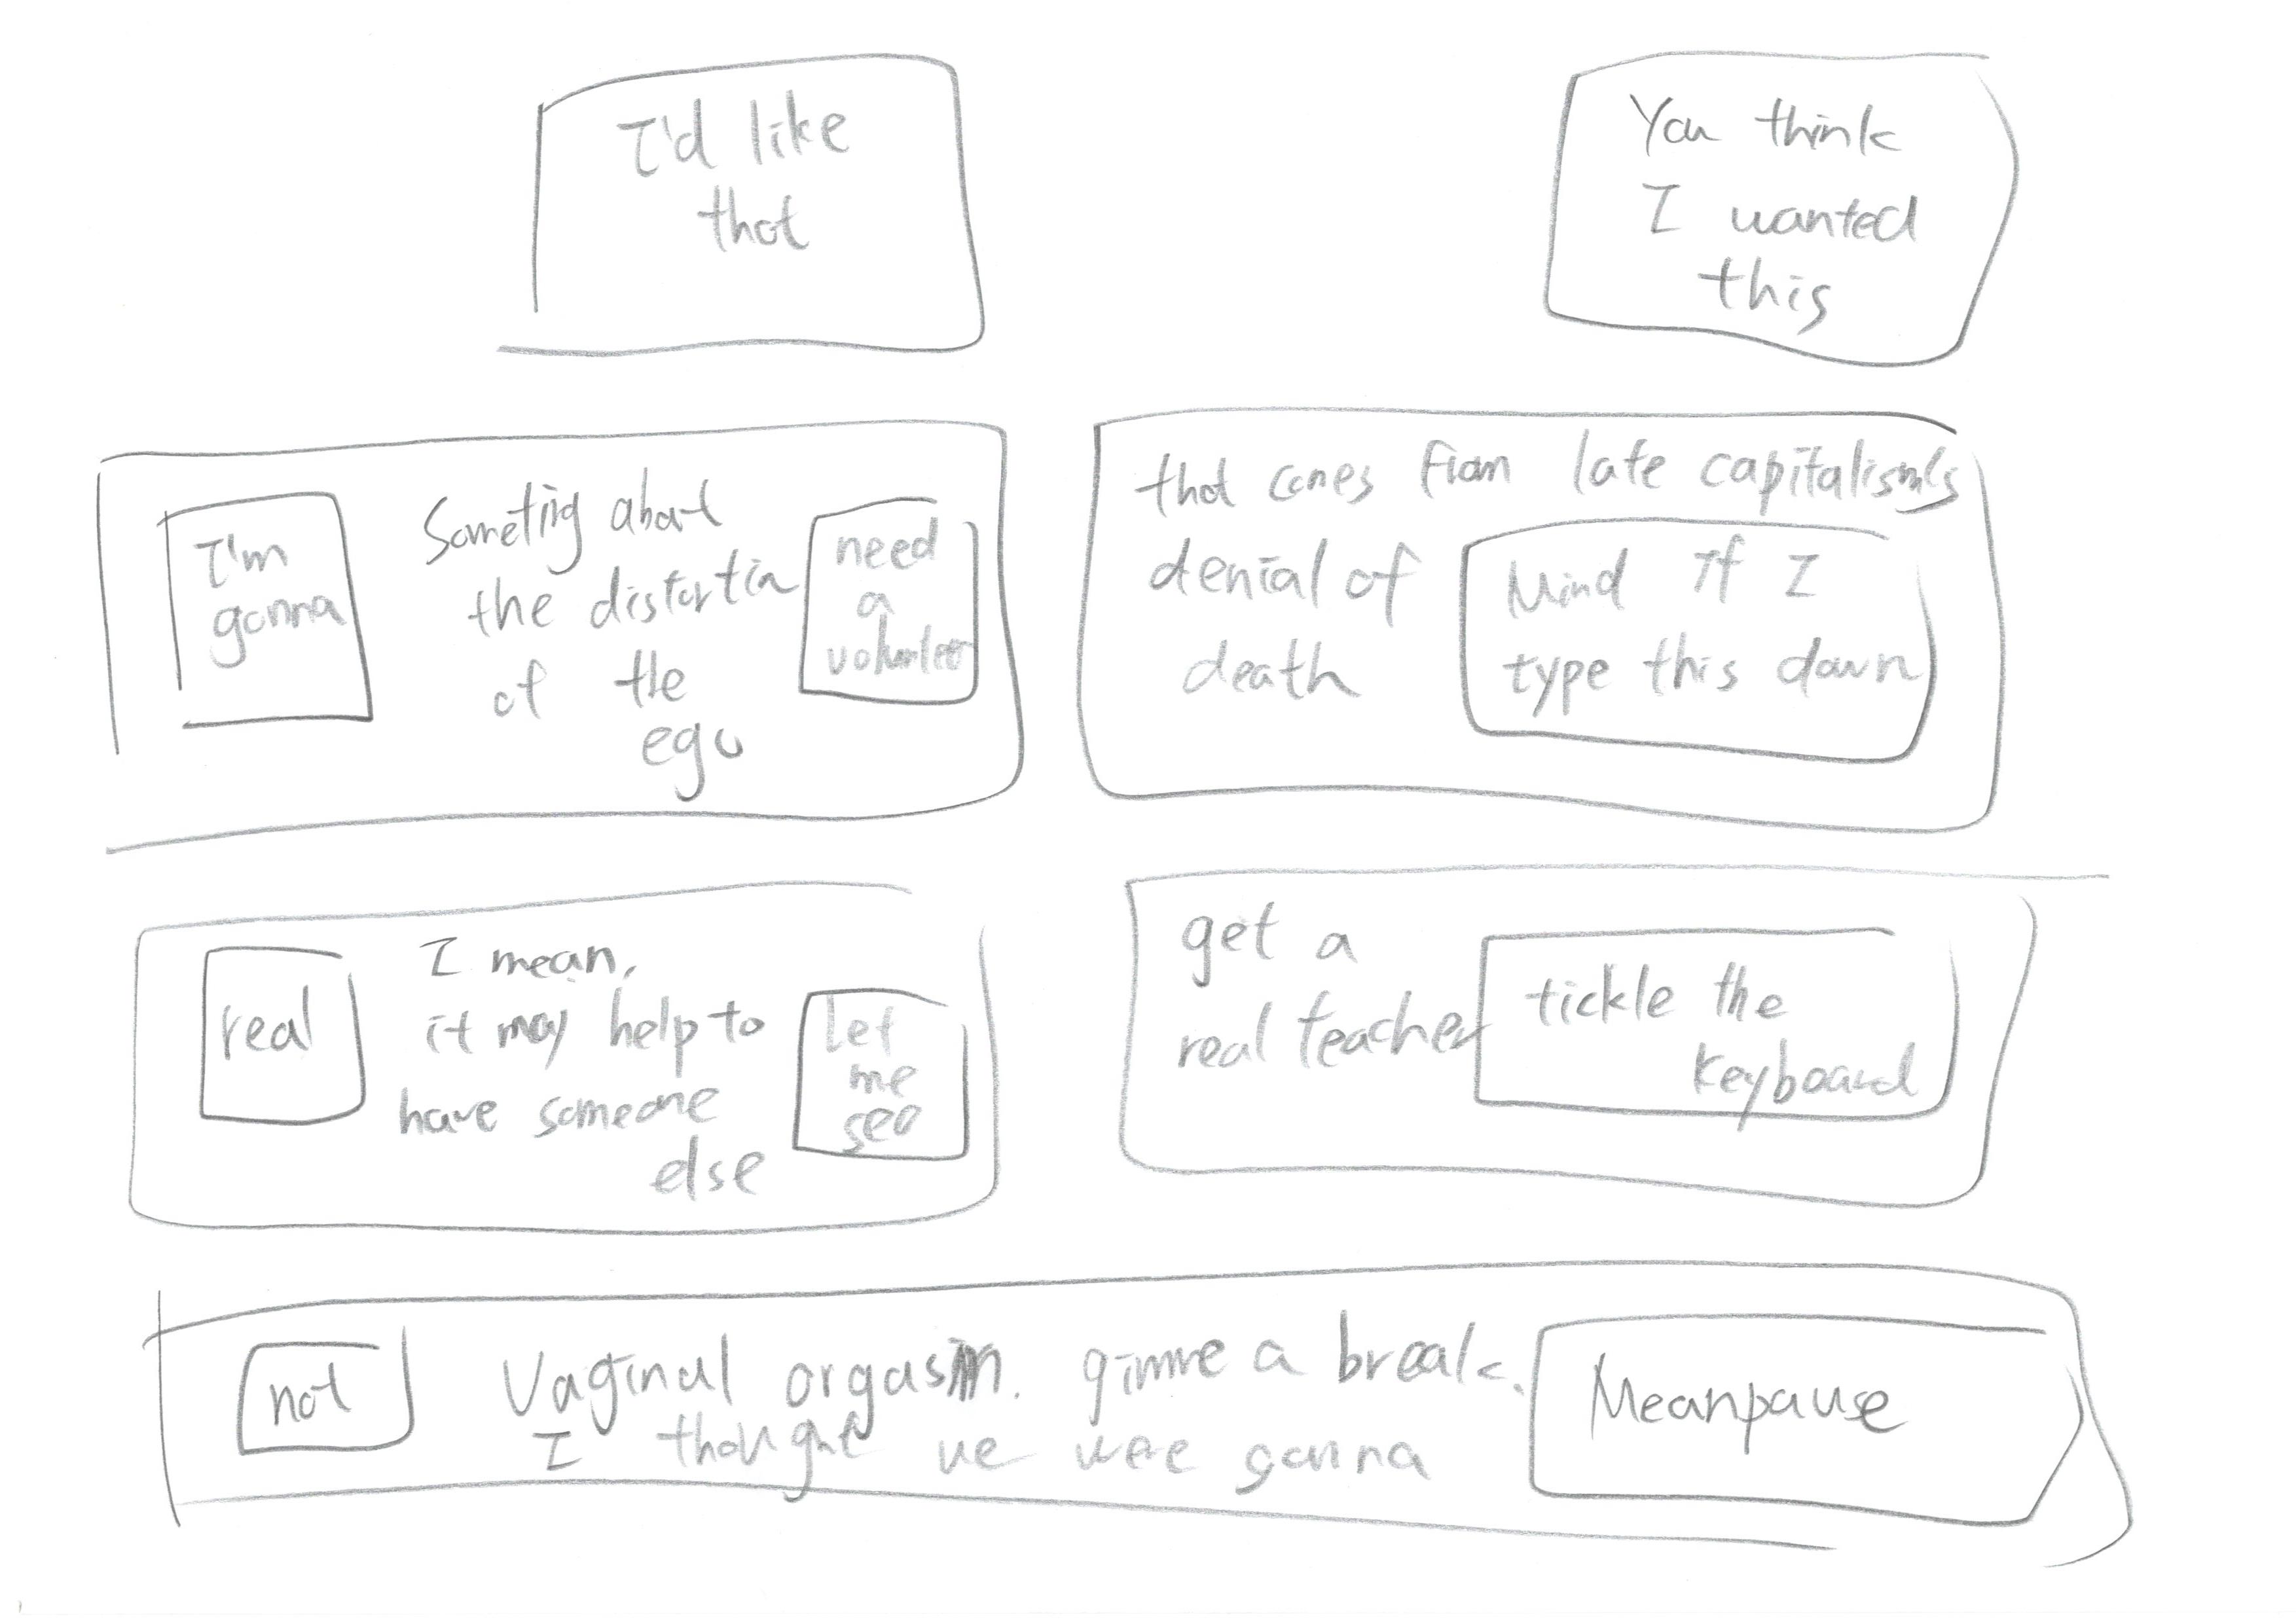 I'd like
that
You think
I wanted
this
I'm
gonna
Someting about
the distortin
of the
ego
need
a
volunteer
that comes from late capitalism's
denial of
death
Mind if I
type this down
real
I mean,
it may help to
have someone
else
Let
me
see
get a
real teacher
tickle the
keyboard
not
Vaginal orgasm. gimme a break.
I thought we were gonna
Meanpause